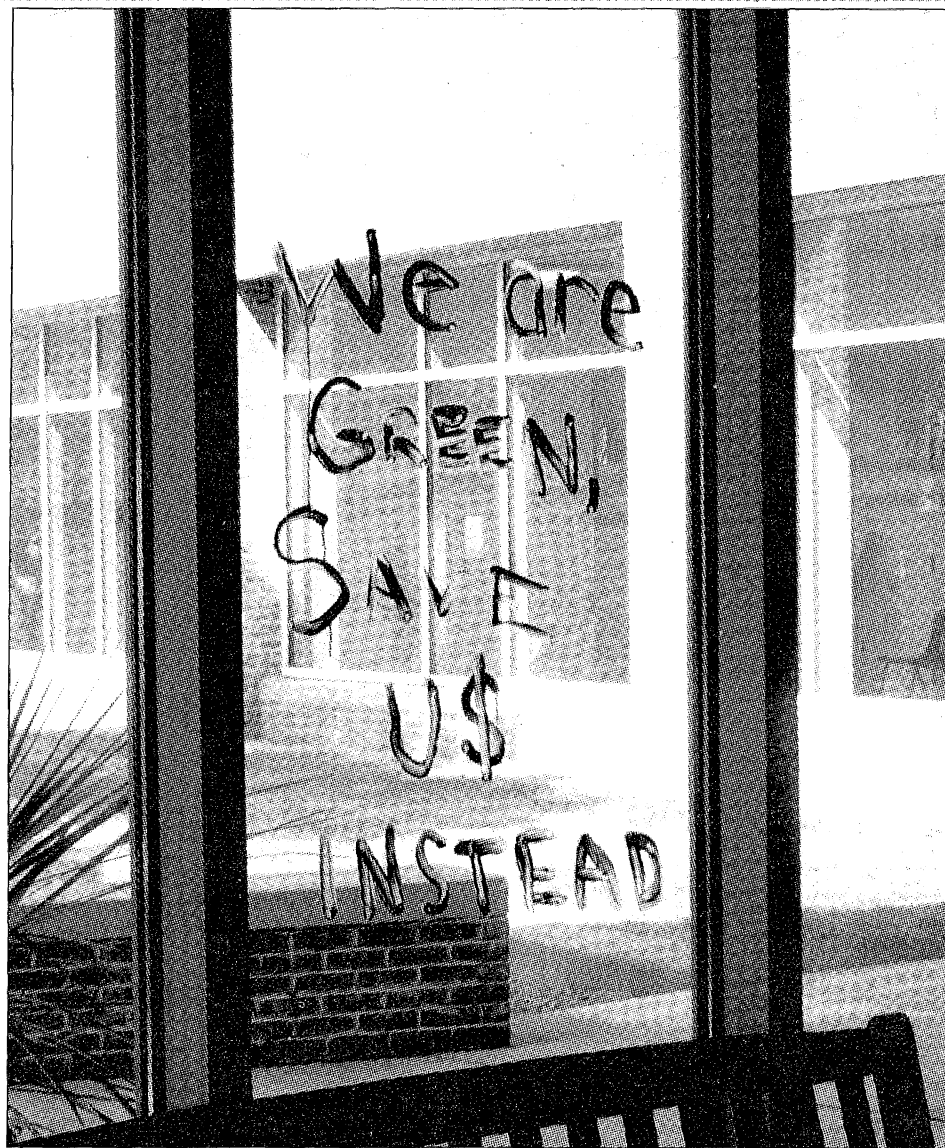 We are
GREEN,
SAVE
U$
INSTEAD